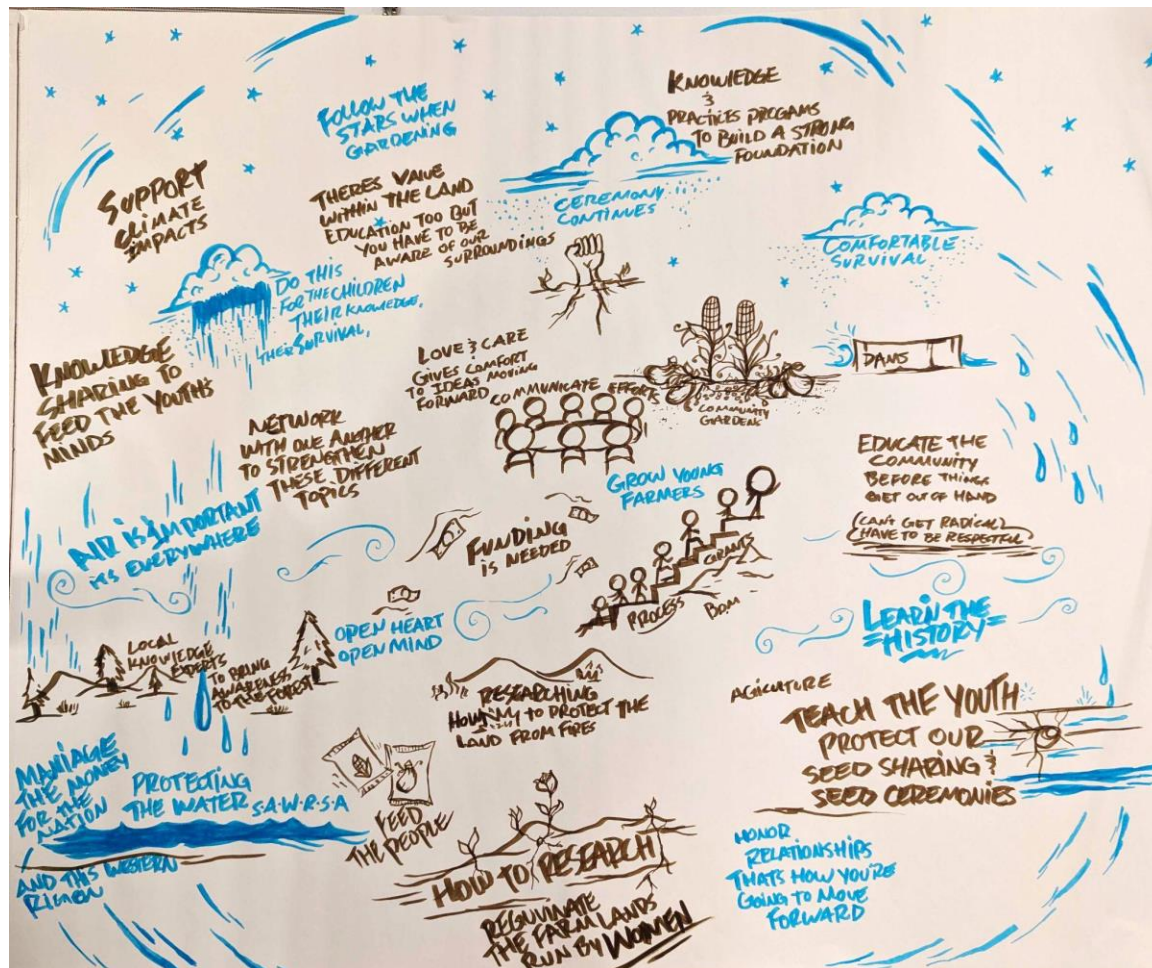 FOLLOW THE
STARS WHEN
GARDENING
KNOWLEDGE
&
PRACTICES PROGAMS
TO BUILD A STRONG
FOUNDATION
SUPPORT
CLIMATE
IMPACTS
THERES VALUE
WITHIN THE LAND
EDUCATION TOO BUT
YOU HAVE TO BE
AWARE OF OUR
SURROUNDINGS
CEREMONY
CONTINUES
COMFORTABLE
SURVIVAL
DO THIS
FOR THE CHILDREN
THEIR KNOWLEDGE,
THEIR SURVIVAL,
KNOWLEDGE
SHARING TO
FEED THE YOUTH'S
MINDS
LOVE & CARE
GIVES COMFORT
TO IDEAS MOVING
FORWARD
COMMUNICATE EFFORTS
COMMUNITY
GARDENS
DAMS
NETWORK
WITH ONE ANOTHER
TO STRENGTHEN
THESE DIFFERENT
TOPICS
EDUCATE THE
COMMUNITY
BEFORE THINGS
GET OUT OF HAND
(CAN'T GET RADICAL)
HAVE TO BE RESPECTFUL)
GROW YOUNG
FARMERS
AIR IS IMPORTANT
ITS EVERYWHERE
FUNDING
IS NEEDED
GRANTS
PROCESS
OPEN HEART
OPEN MIND
LEARN THE
HISTORY
LOCAL
KNOWLEDGE
EXPERTS
TO BRING
AWARENESS
TO THE FOREST
RESEARCHING
TO PROTECT THE
LAND FROM FIRES
TEACH THE YOUTH
PROTECT OUR
SEED SHARING &
SEED CEREMONIES
THE MONEY
FOR THE
NATION
AND THIS WESTERN
PROTECTING
THE WATER S.A.W.R.S.A
FEED
THE PEOPLE
HOW TO RESEARCH
REGUVINATE
THE FARM LANDS
RUN BY WOMEN
HONOR
RELATIONSHIPS
THATS HOW YOU'RE
GOING TO MOVE
FORWARD